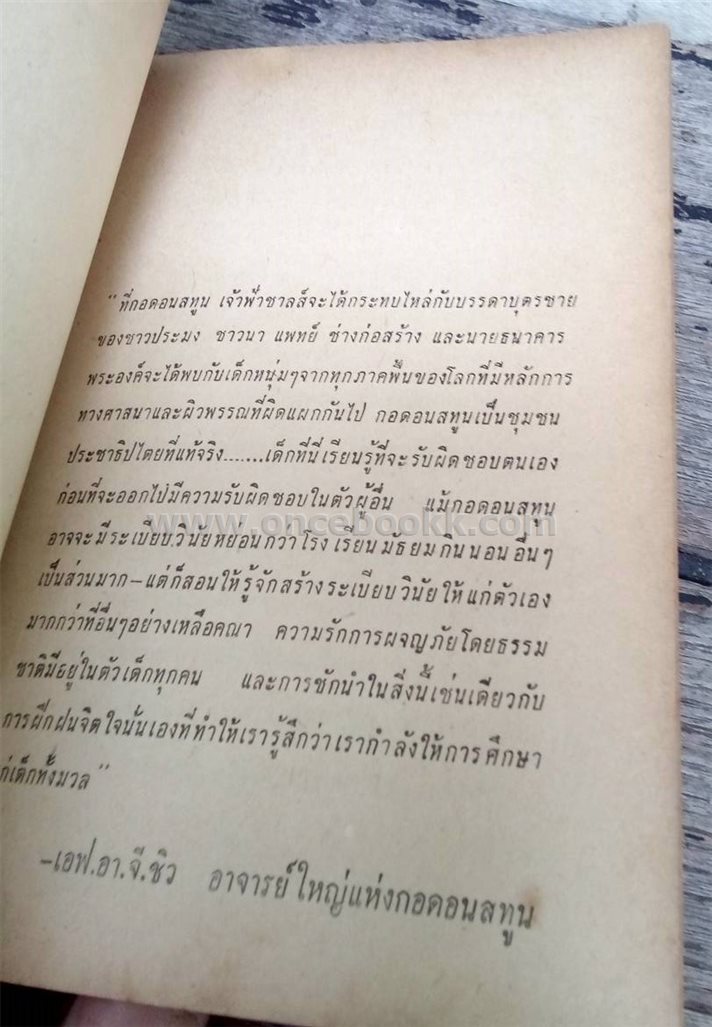 "ที่กอดอนสทูน เจ้าฟ้าชาลส์จะได้กระทบไหล่กับบรรดาบุตรชาย
ของชาวประมง ชาวนา แพทย์ ช่างก่อสร้าง และนายธนาคาร
พระองค์จะได้พบกับเด็กหนุ่มๆจากทุกภาคพื้นของโลกที่มีหลักการ
ทางศาสนาและผิวพรรณที่ผิดแผกกันไป กอดอนสทูนเป็นชุมชน
ประชาธิปไตยที่แท้จริง.......เด็กที่นี่เรียนรู้ที่จะรับผิดชอบตนเอง
ก่อนที่จะออกไปมีความรับผิดชอบในตัวผู้อื่น แม้กอดอนสทูน
www.oncebookk.com
อาจจะมีระเบียบวินัยหย่อนกว่าโรงเรียนมัธยมกินนอนอื่นๆ
เป็นส่วนมาก—แต่ก็สอนให้รู้จักสร้างระเบียบวินัยให้แก่ตัวเอง
มากกว่าที่อื่นๆอย่างเหลือคณา ความรักการผจญภัยโดยธรรม
ชาติมีอยู่ในตัวเด็กทุกคน และการชักนำในสิ่งนี้เช่นเดียวกับ
การฝึกฝนจิตใจนั่นเองที่ทำให้เรารู้สึกว่าเรากำลังให้การศึกษา
ก่เด็กทั้งมวล"
—เอฟ.อา.จี.ชิว อาจารย์ใหญ่แห่งกอดอนสทูน